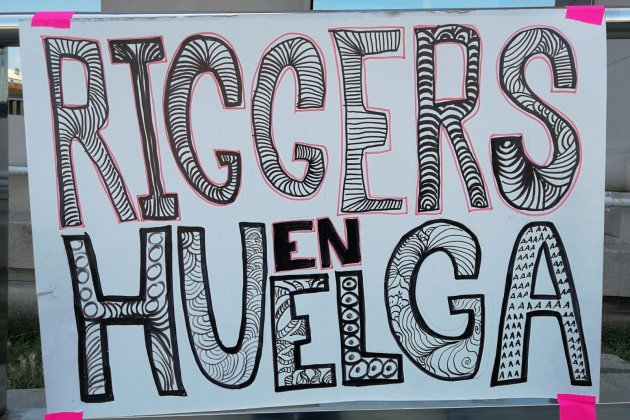 RIGGERS
EN
HUELGA